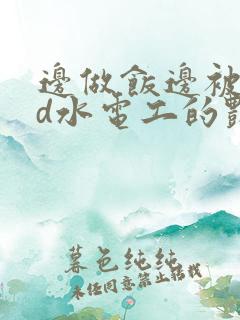 邊做飯邊被
d水電工的
暮色纯纯
未经同意禁止转载